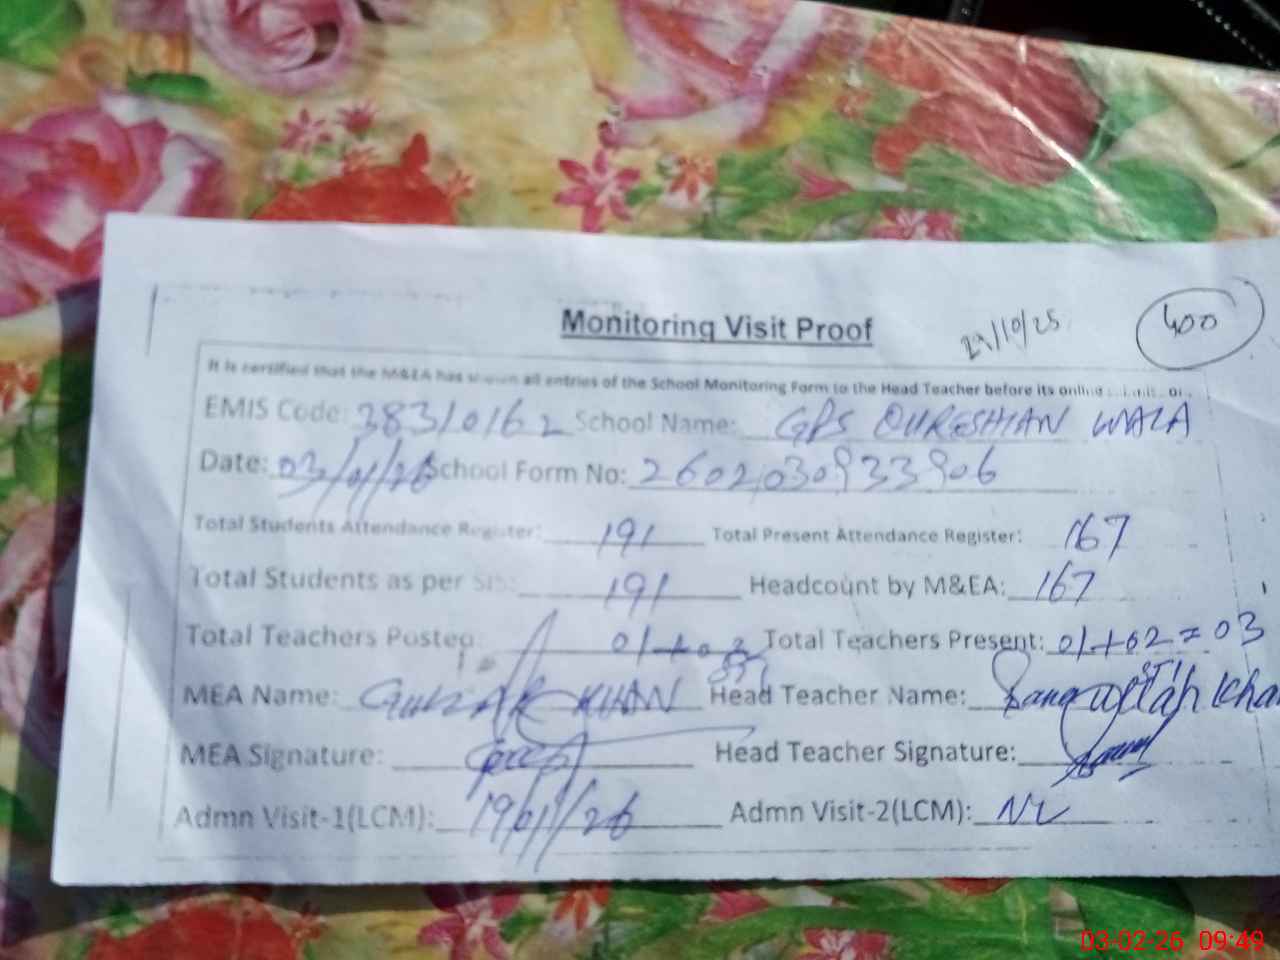 Monitoring Visit Proof
29/10/25
400
It is certified that the M&EA has shown all entries of the School Monitoring Form to the Head Teacher before its online
EMIS Code: 38310162 School Name: GPS QURESHIAN WALA
Date: 03/01/26 School Form No: 2602030933906
Total Students Attendance Register: 191 Total Present Attendance Register: 167
Total Students as per SIS: 191 Headcount by M&EA: 167
Total Teachers Posted: 01+02 Total Teachers Present: 01+02=03
MEA Name: KHAN Head Teacher Name: Khan
MEA Signature: Head Teacher Signature:
Admn Visit-1(LCM): 19/01/26 Admn Visit-2(LCM): NL
03-02-26 09:49